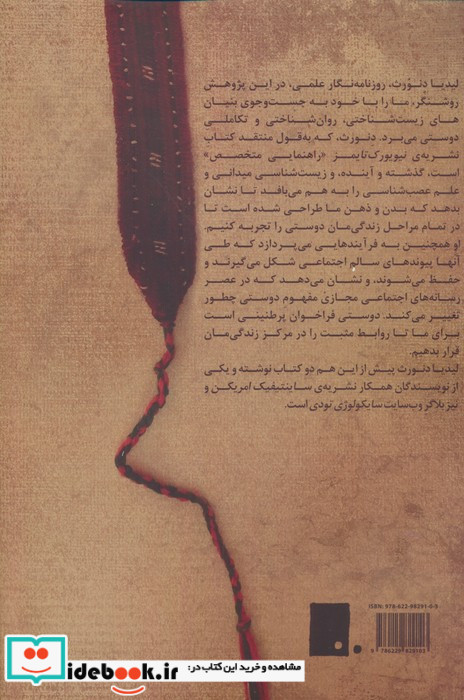 لیدیا دنوُرث، روزنامه‌نگار علمی، در این پژوهش
روشنگر، ما را با خود به جست‌وجوی بنیان
های زیست‌شناختی، روان‌شناختی و تکاملی
دوستی می‌برد. دنورث، که به‌قول منتقد کتاب
نشریه‌ی نیویورک‌تایمز «راهنمایی متخصص»
است، گذشته و آینده، و زیست‌شناسی میدانی و
علم عصب‌شناسی را به هم می‌بافد تا نشان
بدهد که بدن و ذهن ما طراحی شده است تا
در تمام مراحل زندگی‌مان دوستی را تجربه کنیم.
او همچنین به فرآیندهایی می‌پردازد که طی
آنها پیوندهای سالم اجتماعی شکل می‌گیرند و
حفظ می‌شوند، و نشان می‌دهد که در عصر
رسانه‌های اجتماعی مجازی مفهوم دوستی چطور
تغییر می‌کند. دوستی فراخوان پرطنینی است
برای ما تا روابط مثبت را در مرکز زندگی‌مان
قرار بدهیم.
لیدیا دنورث پیش از این هم دو کتاب نوشته و یکی
از نویسندگان همکار نشریه‌ی ساینتیفیک امریکن و
نیز بلاگر وب‌سایت سایکولوژی تودی است.
ISBN: 978-622-98291-0-3
9 786229 829103
مشاهده و خرید این کتاب در:
idebook.ir